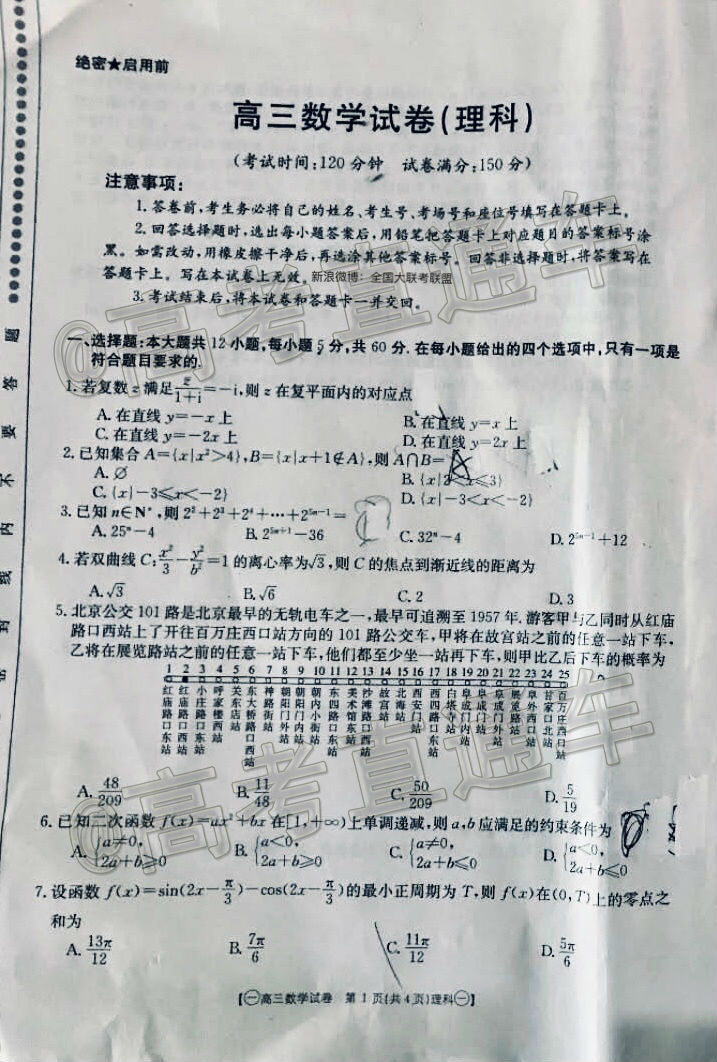 绝密★启用前
高三数学试卷(理科)
(考试时间:120分钟 试卷满分:150分)
注意事项:
1. 答卷前,考生务必将自己的姓名、考生号、考场号和座位号填写在答题卡上。
2. 回答选择题时,选出每小题答案后,用铅笔把答题卡上对应题目的答案标号涂
黑。如需改动,用橡皮擦干净后,再选涂其他答案标号。回答非选择题时,将答案写在
答题卡上。写在本试卷上无效。
新浪微博:全国大联考联盟
3. 考试结束后,将本试卷和答题卡一并交回。
@高考直通车
一、选择题:本大题共12小题,每小题5分,共60分. 在每小题给出的四个选项中,只有一项是
符合题目要求的.
1. 若复数z满足z/(1+i)=-i,则z在复平面内的对应点
A. 在直线y=-x上 B. 在直线y=x上
C. 在直线y=-2x上 D. 在直线y=2x上
2. 已知集合A={x|x²>4},B={x|x+1∉A},则A∩B=
A. ∅ B. {x|2<x≤3}
C. {x|-3≤x<-2} D. {x|-3<x<-2}
3. 已知n∈N*,则2²+2³+2⁴+⋯+2⁵ⁿ⁻¹=
A. 25ⁿ-4 B. 2⁵ⁿ⁺¹-36 C. 32ⁿ-4 D. 2⁵ⁿ⁻¹+12
4. 若双曲线C:x²/3-y²/b²=1的离心率为√3,则C的焦点到渐近线的距离为
A. √3 B. √6 C. 2 D. 3
5. 北京公交101路是北京最早的无轨电车之一,最早可追溯至1957年. 游客甲与乙同时从红庙
路口西站上了开往百万庄西口站方向的101路公交车,甲将在故宫站之前的任意一站下车,
乙将在展览路站之前的任意一站下车,他们都至少坐一站再下车,则甲比乙后下车的概率为
1 2 3 4 5 6 7 8 9 10 11 12 13 14 15 16 17 18 19 20 21 22 23 24 25
红庙路口西站
关东店站
神路街站
朝阳门外站
朝阳门内站
故宫站
北海站
展览路站
百万庄西口站
A. 48/209 B. 11/48 C. 50/209 D. 5/19
@高考直通车
6. 已知二次函数f(x)=ax²+bx在[1,+∞)上单调递减,则a,b应满足的约束条件为
A. {a≠0, 2a+b≥0 B. {a<0, 2a+b≤0 C. {a≠0, 2a+b≤0 D. {a<0, 2a+b≥0
7. 设函数f(x)=sin(2x-π/3)-cos(2x-π/3)的最小正周期为T,则f(x)在(0,T)上的零点之
和为
A. 13π/12 B. 7π/6 C. 11π/12 D. 5π/6
【㊀高三数学试卷 第1页(共4页)理科㊀】
题
答
要
不
内
线
封
密